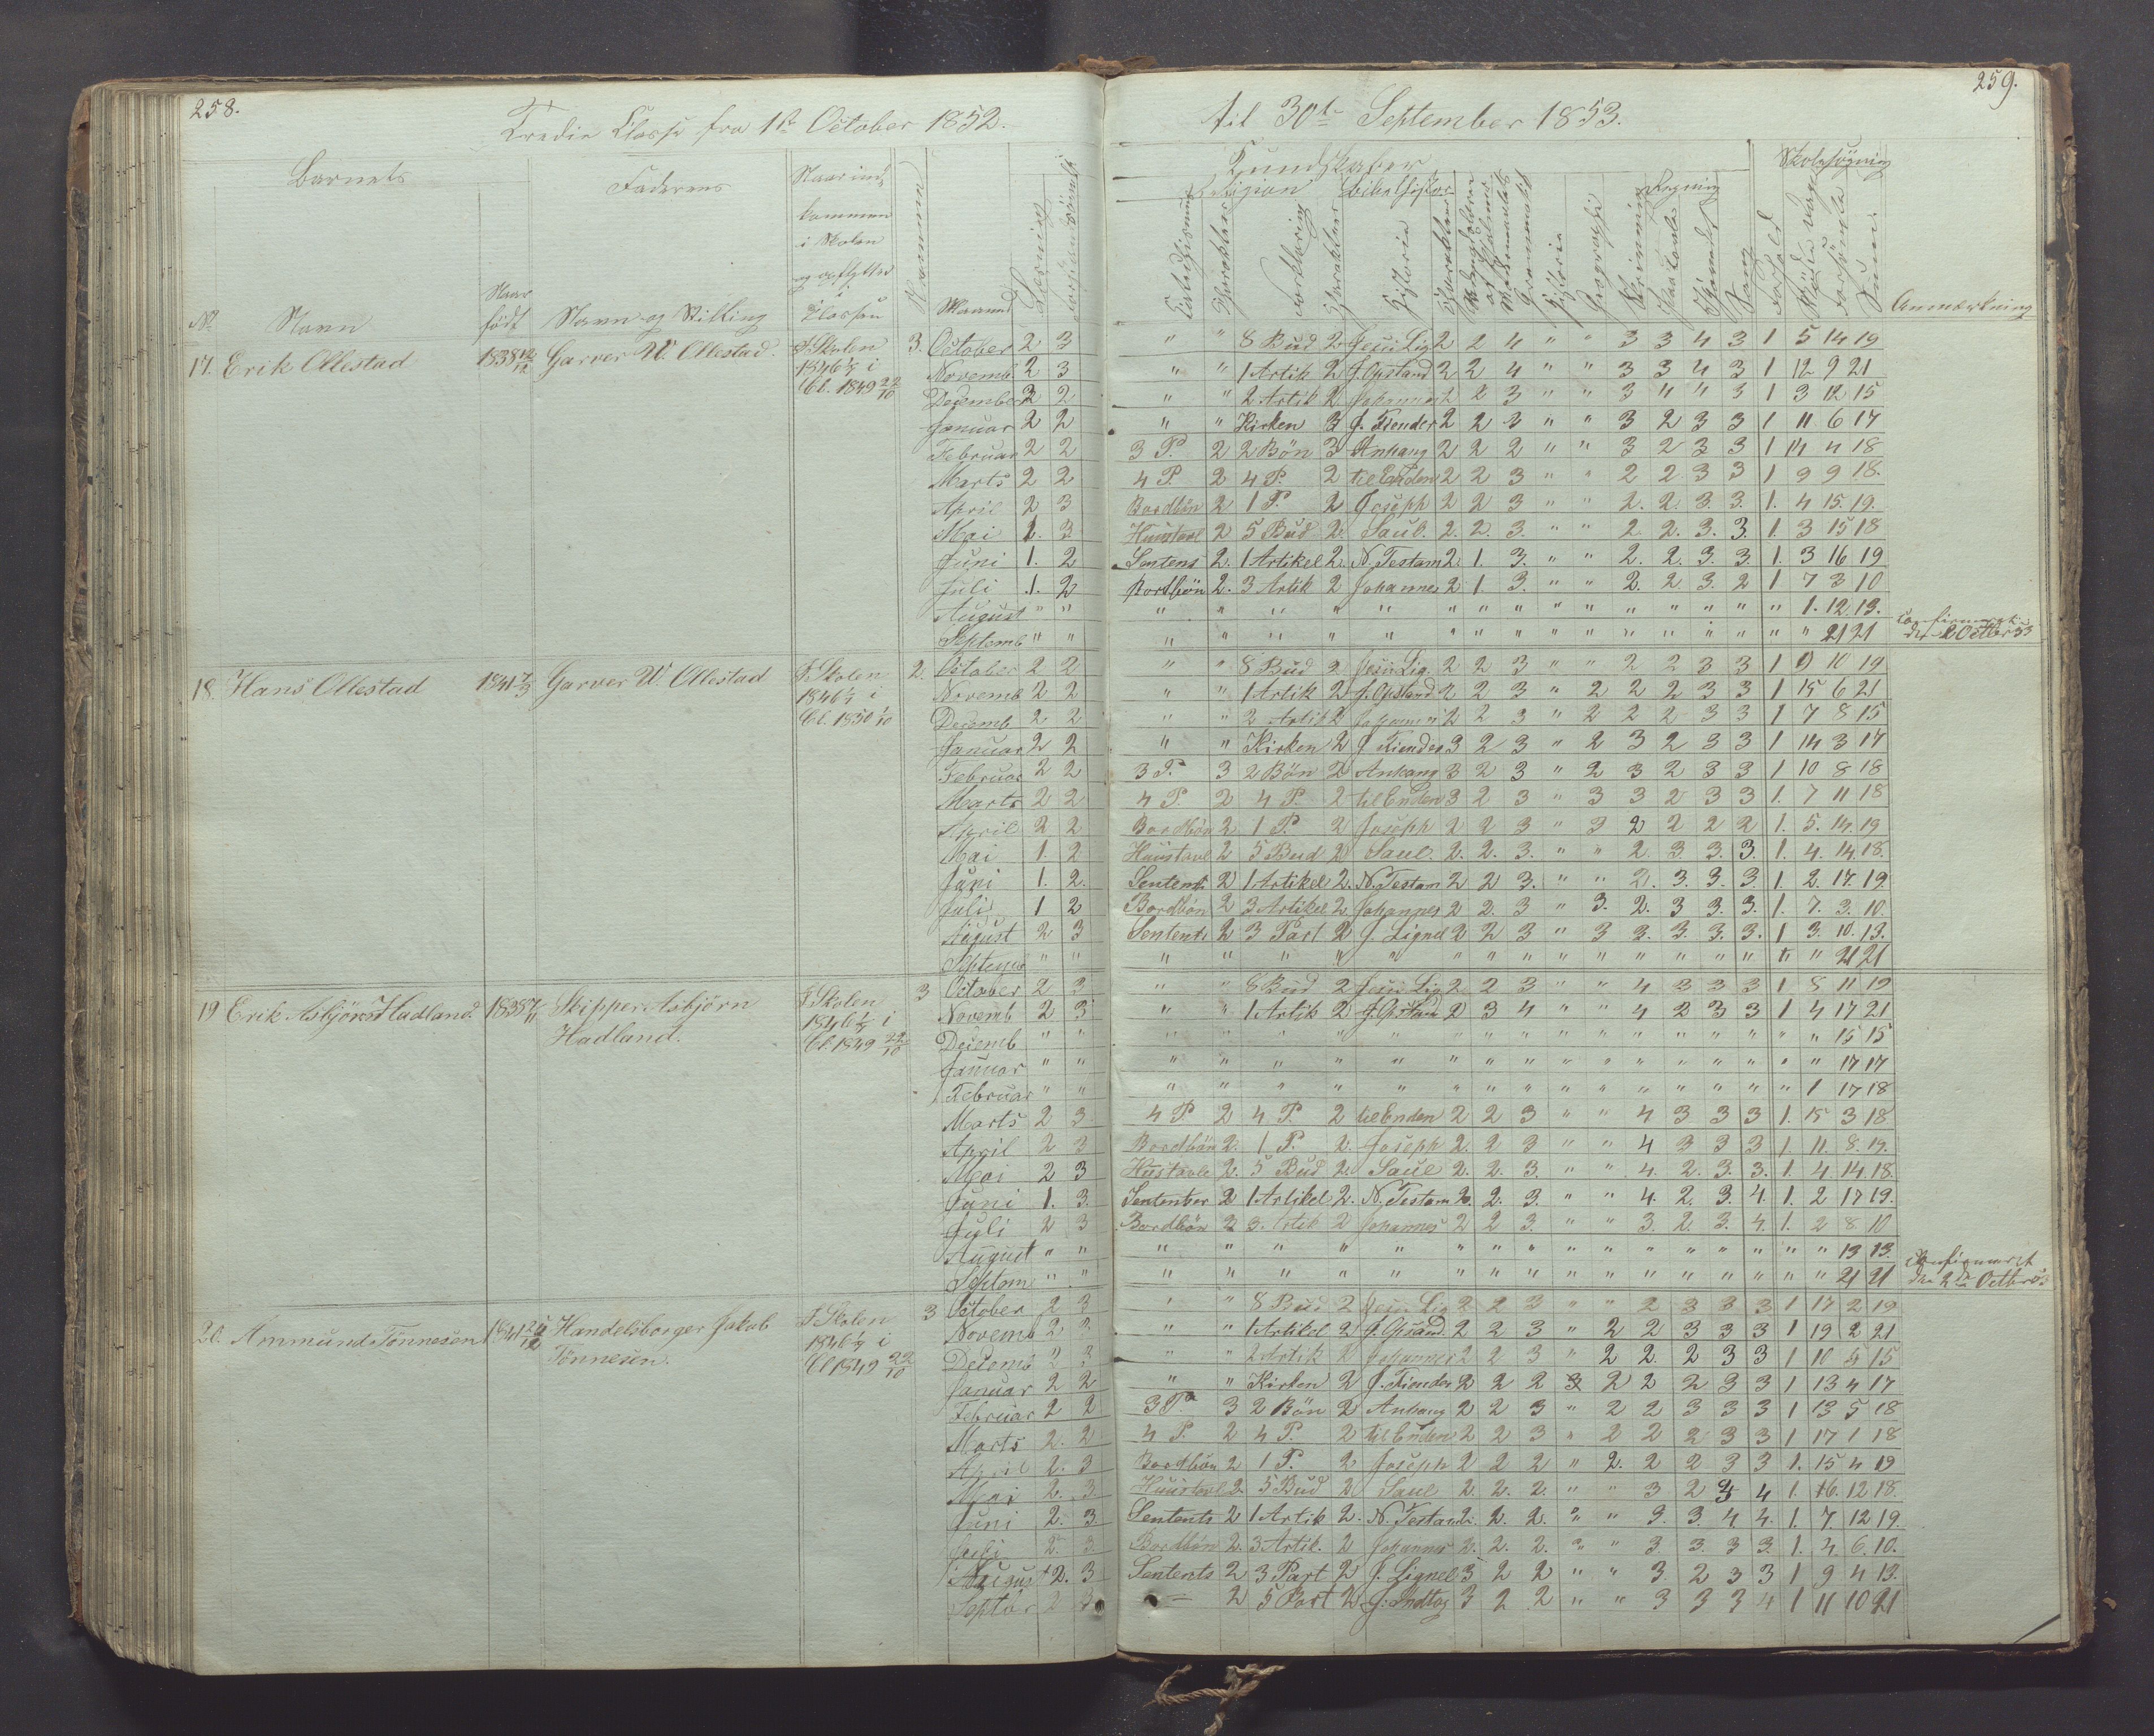 258.
Tredie Classe fra 1ste October 1852.
Barnets
Faderens
Naar ind
kommen
i Skolen
og opflyttet
i
Classen
No Navn
Naar
født
Navn og Stilling
Maaned
17. Erik Ollestad 1838 Garver W. Ollestad. I Skolen 3.
1846 1/7 i
Cl. 1849 22/10
October 2 3
Novemb. 2 3
December 2 2
Januar 2 2
Februar 2 2
Marts 2 2
April 2 3
Mai 2. 3.
Juni 1. 2
Juli 1. 2
August " "
Septemb " "
18. Hans Ollestad 1841 Garver W. Ollestad I Skolen 2.
1846 1/7 i
Cl. 1850 1/10
October 2 2
Novemb 2 2
Decemb 2 2
Januar 2 2
Februar 2 2
Marts 2 2
April 2 2
Mai 1. 2
Juni 1. 2.
Juli 1 2
August 2 3
Septemb " "
19 Erik Asbjørns Hadland. 1838 Skipper Asbjørn I Skolen 3
Hadland. 1846 i
Cl. 1849 22/10
October 2 3
Novemb 2 3
Decemb " "
Januar " "
Februar " "
Marts 2 3
April 2 3
Mai 2 3
Juni 1. 3.
Juli 2 3
August " "
Septem " "
20. Ammund Tønnesen 1841 Handelsborger Jakob I Skolen 3
Tønnesen. 1846 1/7 i
Cl 1849 22/10
October 2 3
Novemb 2 3
Decemb 2 3
Januar 2 2
Februar 2 2
Marts 2. 2
April 2. 3
Mai 2. 3.
Juni 2. 3.
Juli 2. 3.
August 2. 3
Septbr 2 3
259.
til 30te September 1853.
Kundskaber
Skolesøgning
Religion Bibelhistor.
Regning
Forklaring
Historie
Historie
Geographi
Skrivning
Sang
Forhold
Summa
Anmærkning
" " 8 Bud 2 Jesu Lig 2 2 4 " " 3 3 4 3 1 5 14 19
" " 1 Artik 2 J. Opstand 2 2 4 " " 3 3 4 3 1 12 9 21
" " 2 Artik 2 Johannes 2 2 3 " " 3 " " 3 1 3 12 15
" " Kirken 3 J. Fiender 2 2 3 " " 3 2 3 3 1 11 6 17
3 P. 2 2 Bøn 3 Anhang 2 2 2 " " 3 2 3 3 1 14 4 18
4 P. 2 4 P. 2 til Enden 2 2 3 " " 2 2 3 3 1 9 9 18.
Bordbøn 2 1 P. 2 Joseph 2 2 3 " " 2. 2. 3. 3. 1. 4 15. 19.
Huustavl 2 5 Bud 2. Saul. 2. 2. 3. " " 2. 2. 3. 3. 1. 3 15 18
Sentens 2. 1 Artikel 2. N. Testam 2. 1. 3. " " 2. 2. 3. 3. 1. 3 16 19
Bordbøn 2. 3 Artik 2 Johannes 2 1. 3. " " 2. 2. 3. 2 1 7 3 10
" " " " " " " " " " " " " " " 1. 12. 13.
" " " " " " " " " " " " " " " " 21 21 confirmeret den 2 Octbr 53
" " 8 Bud 2 Jesu Lig. 2 2 3 " " 2 2 3 3 1 9 10 19
" " 1 Artik 2 J. Opstand 2 2 3 " 2 2 2 3 3 1 15 6 21
" " 2 Artik 2 Johannes 2 2 3 " 2 2 2 3 3 1 7 8 15
" " Kirken 2 J. Fiender 3 2 3 " 2 3 2 3 3 1 14 3 17
3 P. 3 2 Bøn 2 Anhang 3 2 3 " 2 3 2 3 3 1 10 8 18
4 P. 2 4 P. 2 til Enden 3 2 3 " 3 3 2 3 3 1. 7 11 18
Bordbøn 2. 1 P. 2 Joseph 2 2 3 " 3 2 2 2 2 1. 5. 14. 19
Huustavl 2 5 Bud 2 Saul. 2. 2. 3. " " 2. 3. 3. 3. 1. 4. 14. 18.
Sentents 2 1 Artikel 2. N. Testam 2 2 3. " " 2. 3. 3. 3. 1. 2. 17. 19.
Bordbøn 2 3 Artikel 2 Johannes 2 2. 3 " 3. 2. 3 3. 3. 1. 7. 3. 10.
Sentents 2 3 Part 2 J. Lignel 2 2 3 " 3 3. 3. 3. 3. 1 3. 10. 13.
" " " " " " " " " " " " " " " " 21 21
" " 8 Bud 2 Jesu Lig 2 2 3 " " 4 3 3 3 1 8 11 19
" " 1 Artik 2 J. Opstand 2 3 4 " " 4 2 3 3 1 4 17 21
" " " " " " " " " " " " " " " " 15 15
" " " " " " " " " " " " " " " " 17 17
" " " " " " " " " " " " " " " 1 17 18
4 P. 2 4 P. 2 til Enden 2 2 3 " " 4 3 3 3 1. 15 3 18
Bordbøn 2. 1 P. 2. Joseph 2. 2 3 " " 4 3 3 3 1 11. 8. 19.
Hustavle 2. 5 Bud 2. Saul 2. 2. 3. " " 4. 2. 3. 3. 1. 4 14. 18.
Sententser 2 1 Artikel 2. N. Testam 2. 2. 3. " " 4. 2. 3. 4. 1. 2 17 19.
Bordbøn 2 3. Artik 2 Johannes 2 2 3. " " 3. 2. 3. 4. 1. 2 8. 10
" " " " " " " " " " " " " " " " 13 13.
" " " " " " " " " " " " " " " " 21 21 Confirmeret den 2den Octbr 53
" " 8 Bud 2 Jesu Lig 2 2 3 " " 2 3 3 3 1 17 2 19
" " 1 Artikel 2 J. Opstand. 2 2 3 " 2 2 3 3 3 1 19 2 21
" " 2 Artik 2 Johannes 2 2 3 " 2 2 2 3 3 1 10 5 15
" " Kirken 2 J. Fiender 2 2 2 3 2 2 2 3 3 1 13 4 17
3 P. 3 2 Bøn 2 Anhang 2 2 3 " 2 2 3 3 3 1 13 5 18
4 P. 2 4 P. 2 til Enden 2 2 3 " 2 2 2 3 3 1 17 1 18
Bordbøn 2 1 P. 2 Joseph 2 2 2 " 2. 2 2 3 3 1. 15 4 19
Huustavl 2. 5 Bud 2 Saul 2. 2. 2. " " 3 2 4 1. 12 18.
Sentents 2 1 Artik 2. N. Testam 2. 2. 2. " " 3. 3. 4 4. 1. 7. 12 19.
Bordbøn 2. 3 Artik. 2 Johannes 2. 2. 2. " " 3. 3. 3 3. 1. 4. 6. 10.
Sentents 2 3 Part 2 J. Lignel 3 2 2 " " 3. 2 3 3 1 9 4 13.
" 2 5 Part 2 J. Indtog 3 2 2 " " 3 3 3 4 1 11 10 21